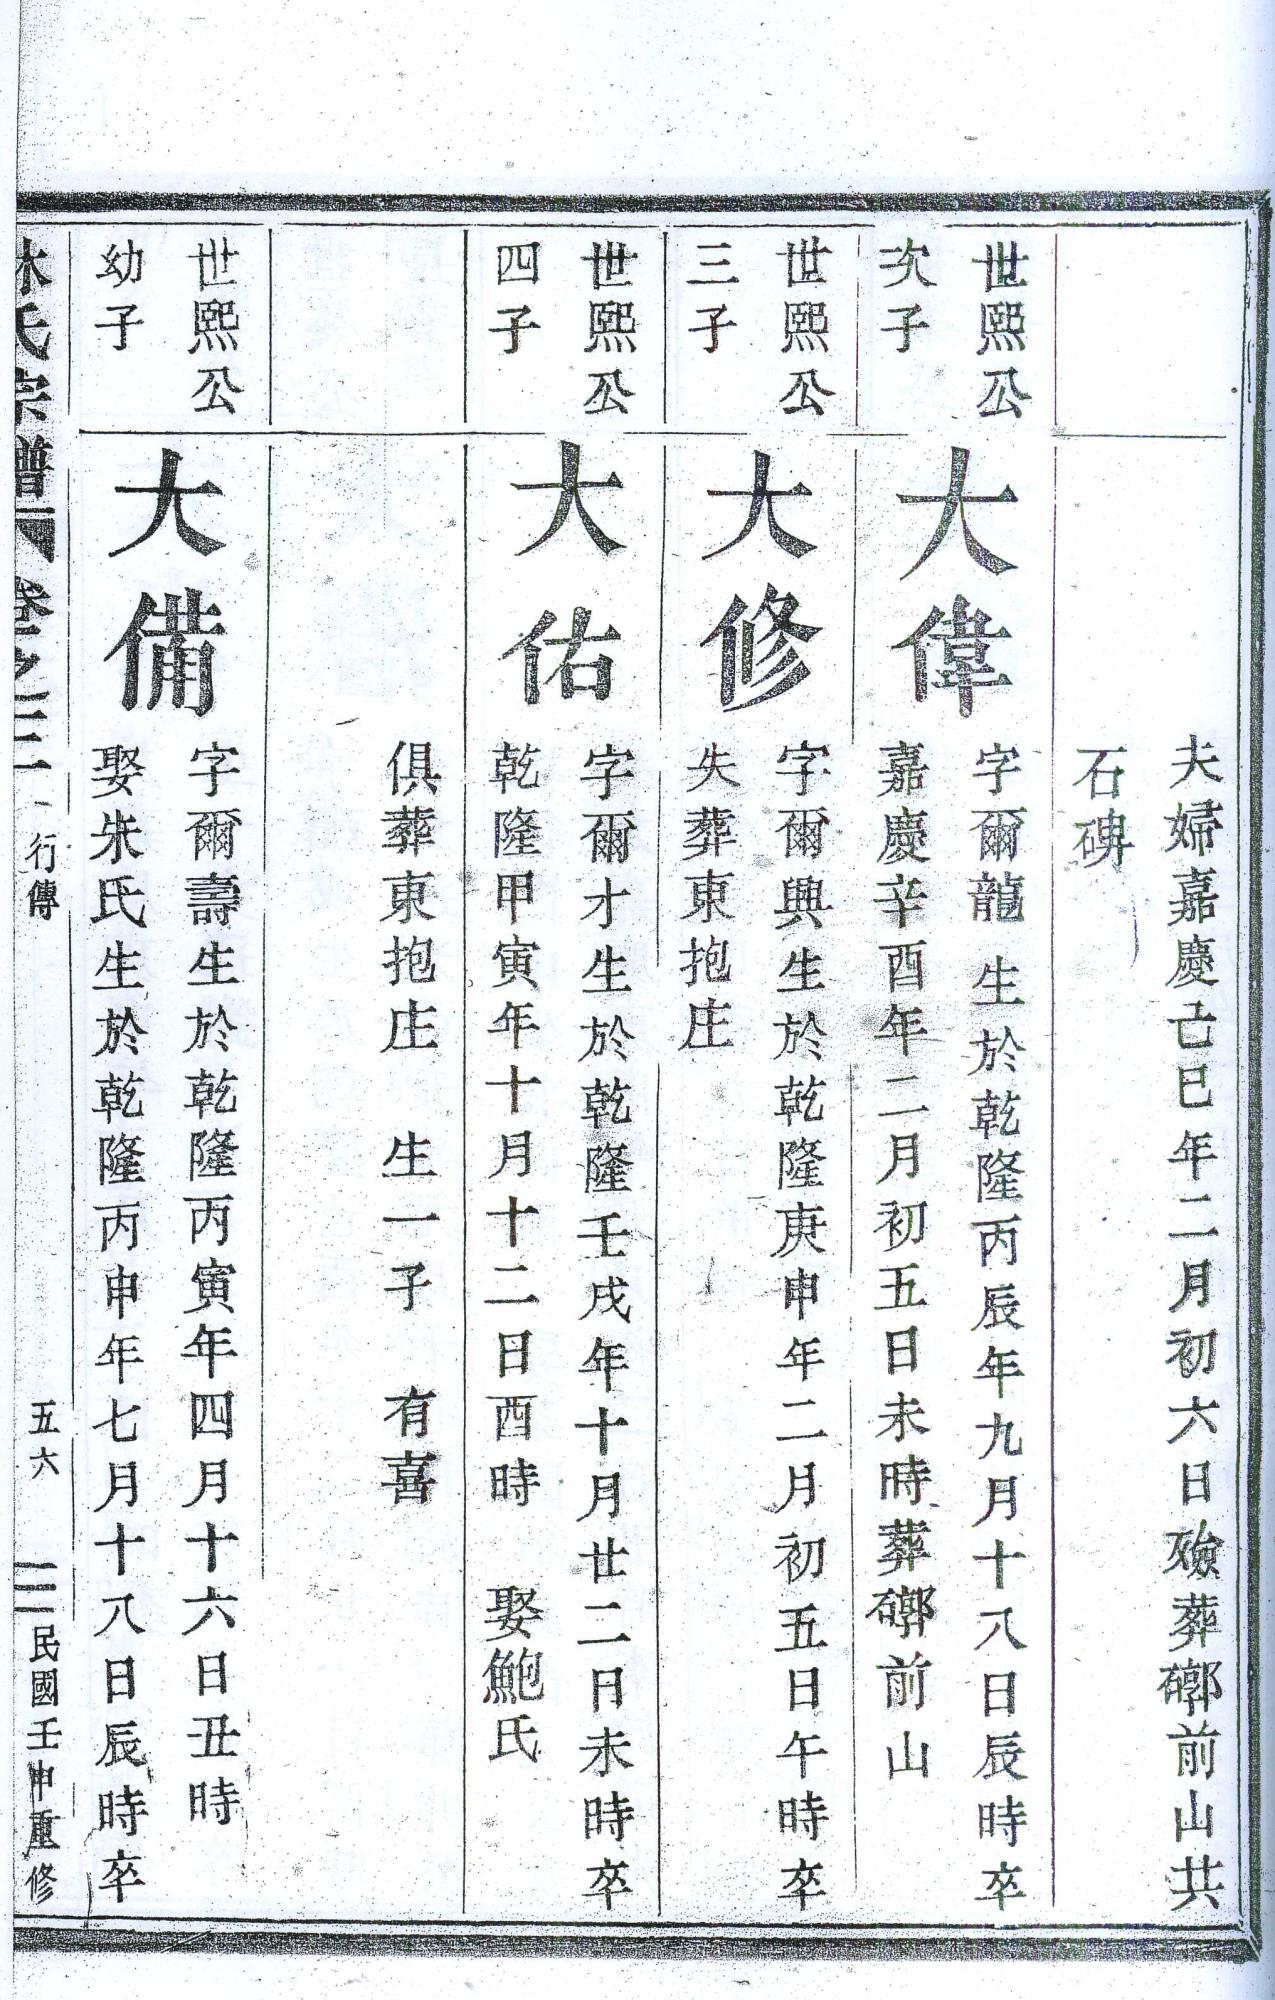 夫婦嘉慶己巳年二月初六日殮葬𥕏前山共
石碑
世熙公
次子
大偉
字爾龍生於乾隆丙辰年九月十八日辰時卒
嘉慶辛酉年二月初五日未時葬𥕏前山
世熙公
三子
大修
字爾興生於乾隆庚申年二月初五日午時卒
失葬東抱庄
世熙公
四子
大佑
字爾才生於乾隆壬戌年十月廿二日未時卒
乾隆甲寅年十月十二日酉時 娶鮑氏
俱葬東抱庄 生一子 有喜
世熙公
幼子
大備
字爾壽生於乾隆丙寅年四月十六日丑時
娶朱氏生於乾隆丙申年七月十八日辰時卒
林氏宗譜 卷之三 行傳 五六 民國壬申重修